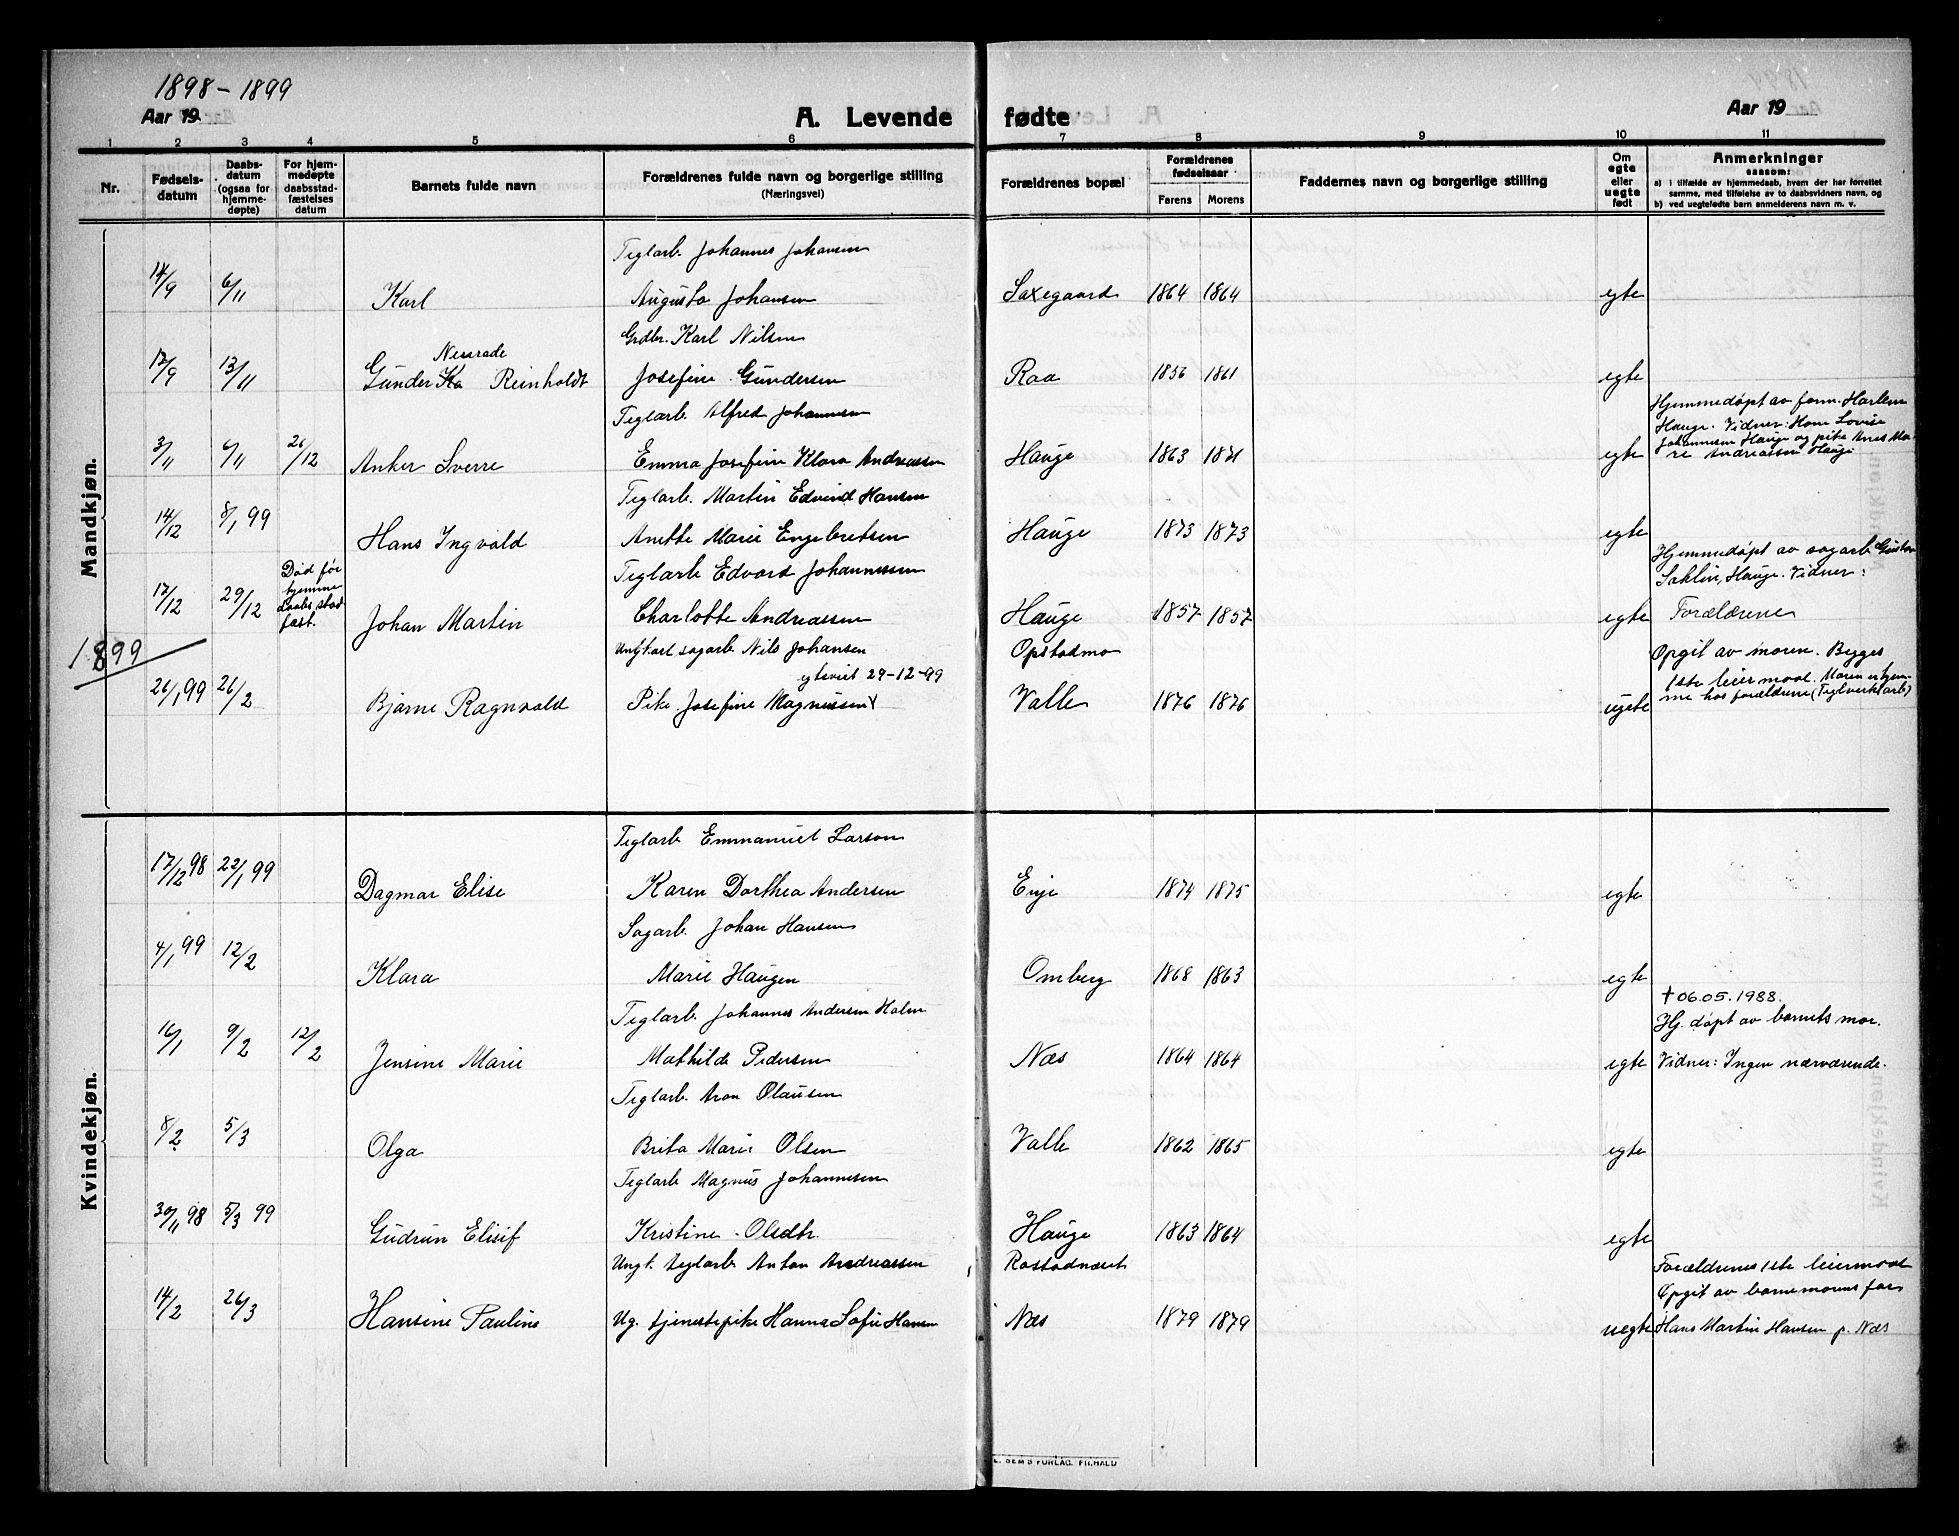 1898-1899
Aar 19
A. Levende fødte
Aar 19
1 2 3 4 5 6 7 8 9 10 11
Nr.
Fødsels-
datum
Daabs-
datum
(ogsaa for
hjemme-
døpte)
For hjem-
medøpte
daabsstad-
fæstelses
datum
Barnets fulde navn
Forældrenes fulde navn og borgerlige stilling
(Næringsvei)
Forældrenes bopæl
Forældrenes
fødselsaar
Farens Morens
Faddernes navn og borgerlige stilling
Om
egte
eller
uegte
født
Anmerkninger
saasom:
a) i tilfælde av hjemmedaab, hvem der har forrettet
samme, med tilføielse av to daabsvidners navn, og
b) ved uegtefødte barn anmelderens navn m. v.
Mandkjøn.
Teglarb. Johannes Johansen
14/9 6/11 Karl Augusta Johansen Saxegaard 1864 1864 egte
Grdbr. Karl Nilsen
Nessrade
17/9 13/11 Gunder Ka Reinholdt Josefine Gundersen Raa 1856 1861 egte
Teglarb. Alfred Johannesen
Hjemmedøpt av form. Harlem
Hauge. Vidner: Kone Lovise
Johannesen Hauge og pike Anes Ma-
3/11 6/11 26/12 Anker Sverre Emma Josefine Klara Andreassen Hauge 1863 1871 egte re Andreassen Hauge
Teglarb. Martin Edvind Hansen
14/12 8/1 99 Hans Ingvald Anette Marie Engebretsen Hauge 1873 1873 egte
Teglarb Edvard Johannessen
Hjemmedøpt av sagarb. Gustav
Saklin, Hauge. Vidner:
17/12 29/12 Død før
hjemme
daabs stad
fæst. Johan Martin Charlotte Andreassen Hauge 1857 1857 egte Forældrene
1899
Ungkarl sagarb. Nils Johansen Opstadmo Opgit av moren. Begges
egteviet 29-12-99 1ste leiermaal. Moren er hjem-
26/1 99 26/2 Bjarne Ragnvald Pike Josefine Magnussen Valle 1876 1876 uegte me hos forældrene (Teglverksarb)
Kvindekjøn.
Teglarb Emmanuel Larson
17/12 98 22/1 99 Dagmar Elise Karen Dorthea Andersen Enge 1874 1875 egte
Sagarb. Johan Hansen
4/1 99 12/2 Klara Marie Haugen Omberg 1868 1863 egte
Teglarb. Johannes Andersen Holm
✝06.05.1988.
Hj. døpt av barnets mor.
16/1 9/2 12/2 Jensine Marie Mathilde Pedersen Næs 1864 1864 egte Vidner: Ingen nærværende.
Teglarb. Aron Olausen
8/2 5/3 Olga Brita Marie Olsen Valle 1862 1865 egte
Teglarb Magnus Johannesen
30/11 98 5/3 99 Gudrun Elisif Kristine Olsdtr. Hauge 1863 1864 egte
Ungk. teglarb. Anton Andreassen Rostadnæset
Forældrenes 1ste leiermaal
Opgit av barnemorens far
14/2 26/3 Hansine Pauline Ug. tjenestepike Hanna Sofie Hansen Næs 1879 1879 uegte Hans Martin Hansen p. Næs
E. SEM'S FORLAG. FR.HALD